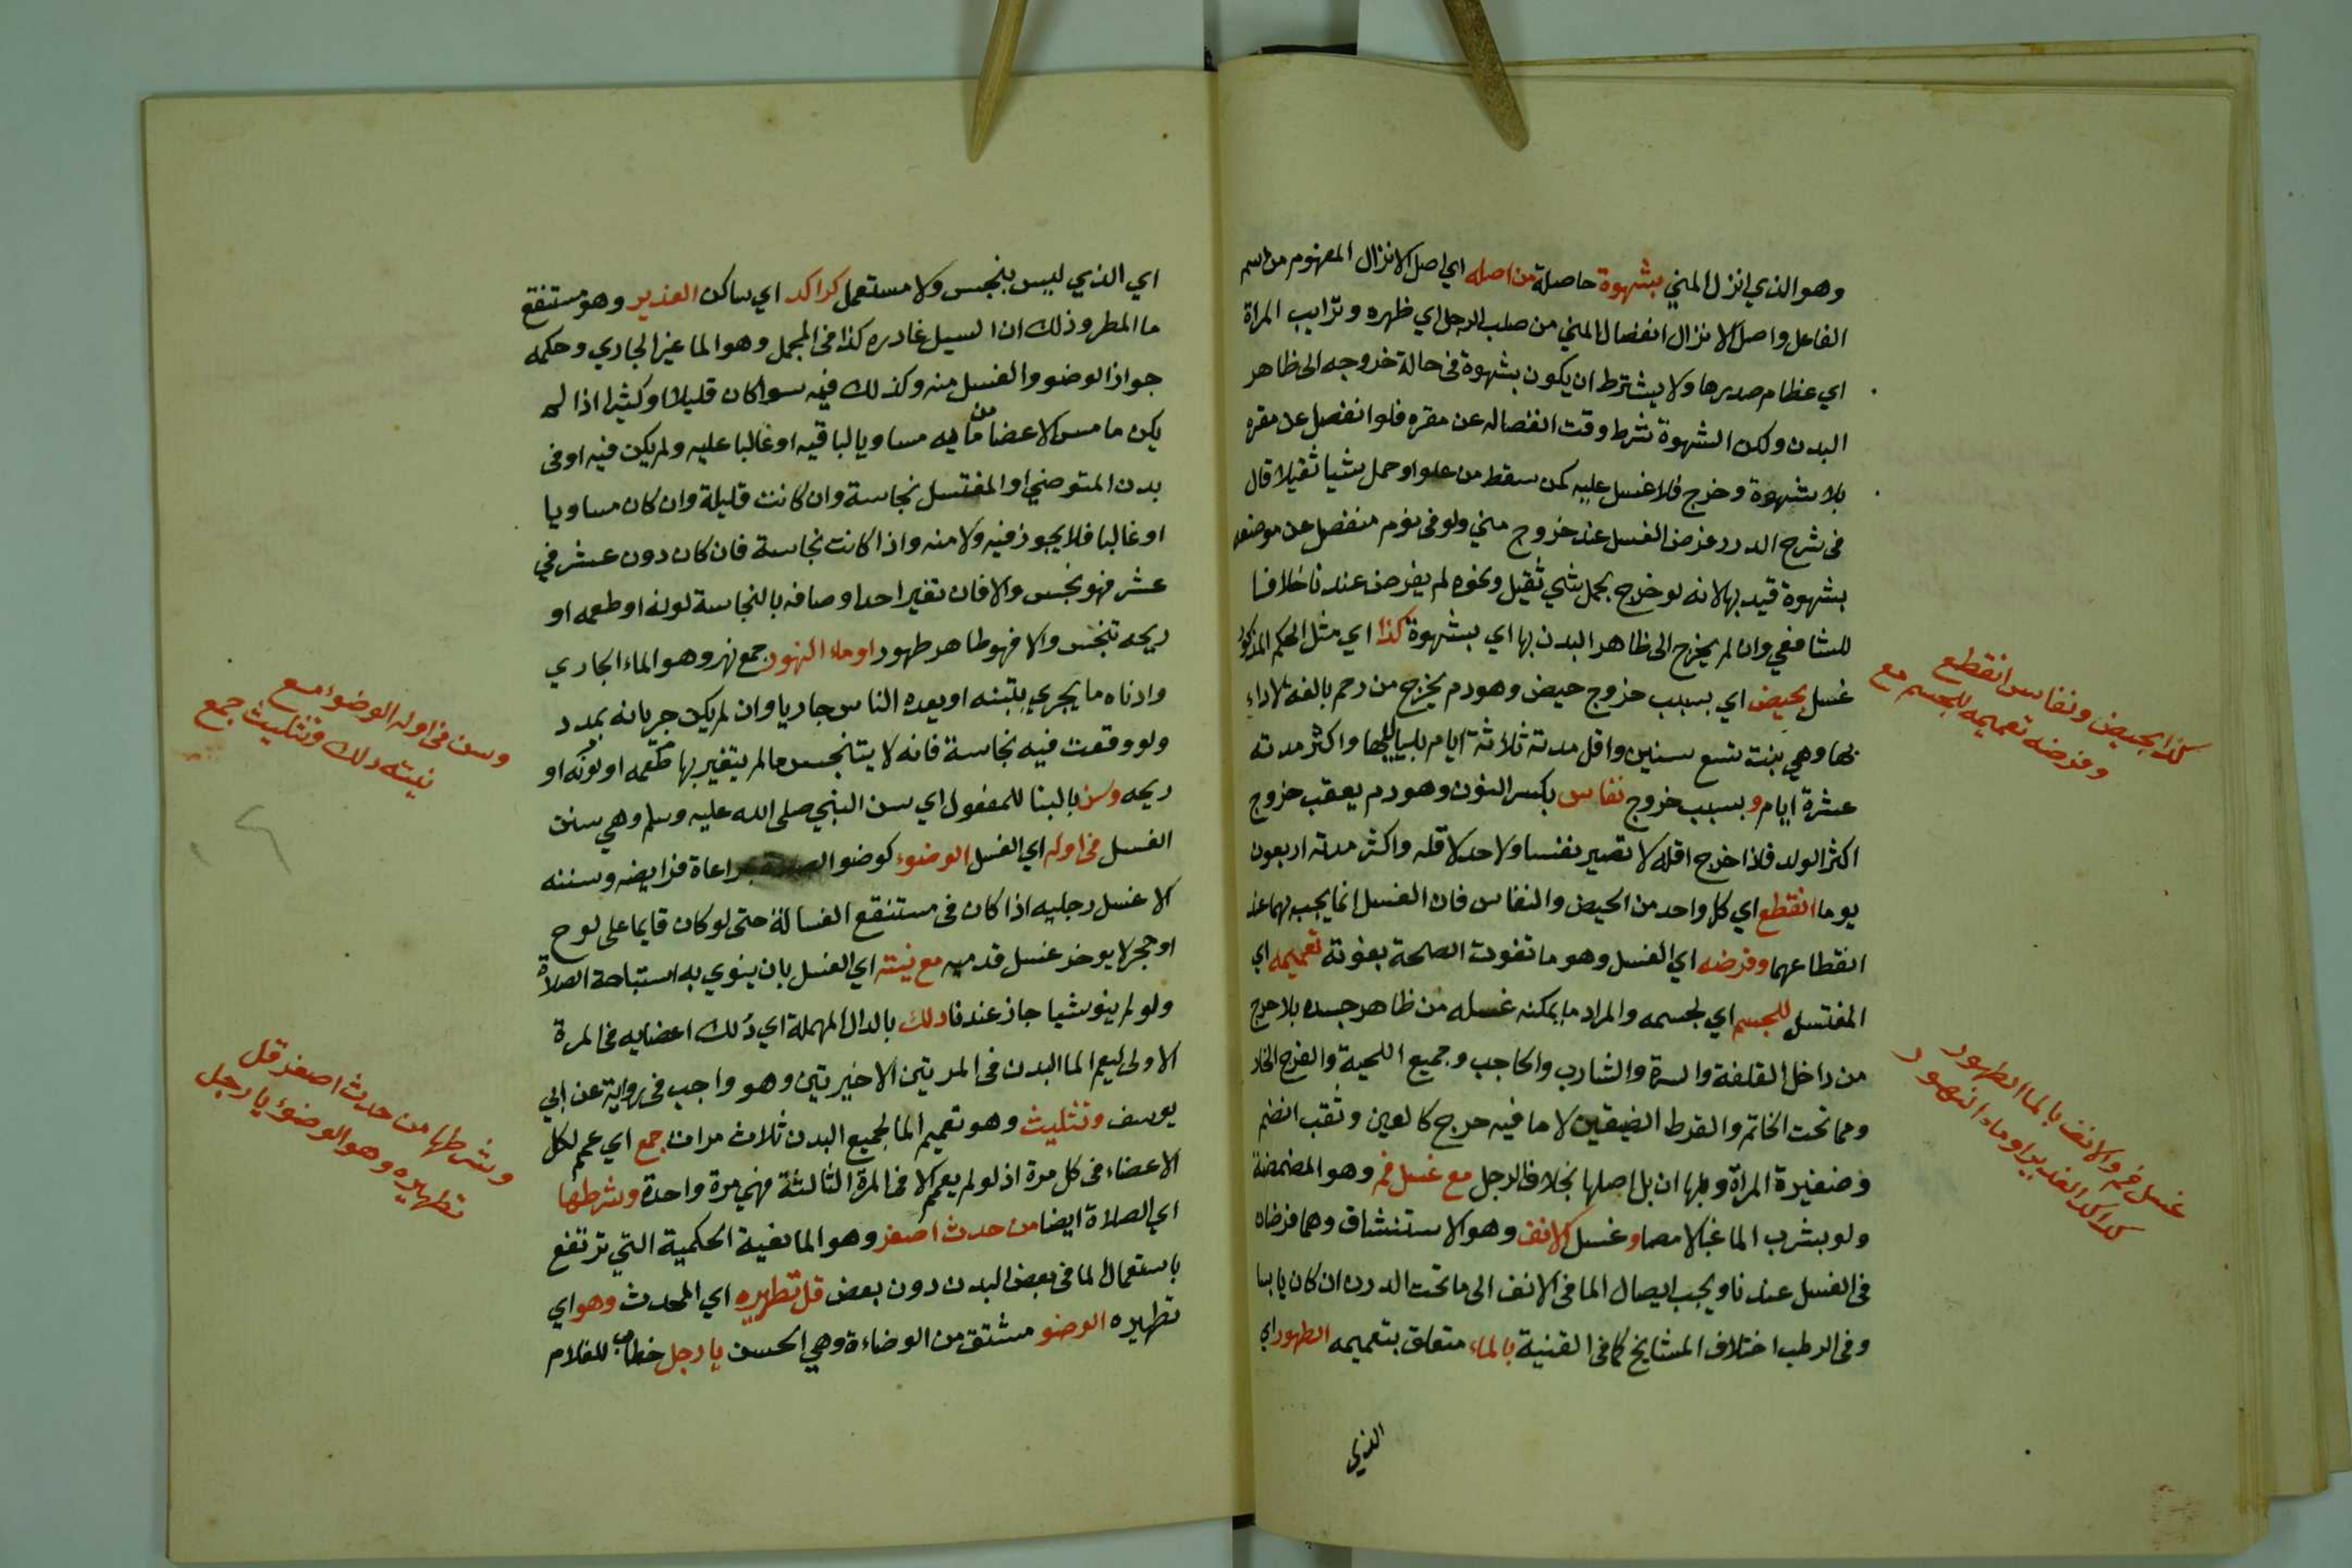 وهو الذي انزل المني بشهوة حاصلة من اصله اي اصل الانزال المفهوم من اسم
الفاعل واصل الانزال انفصال المني من صلب الرجل اي ظهره وترايب المراة
اي عظام صدرها ولا يشترط ان يكون بشهوة في حالة خروجه الى ظاهر
البدن ولكن الشهوة شرط وقت انفصاله عن مقره فلو انفصل عن مقره
بلا شهوة وخرج فلا غسل عليه كمن سقط من علو او حمل شيا ثقيلا قال
في شرح الدرر فرض الغسل عند خروج مني ولو في نوم منفصل عن موضعه
بشهوة قيد بها لانه لو خرج بحمل شي ثقيل ونحوه لم يفرض عندنا خلافا
للشافعي وان لم يخرج الى ظاهر البدن بها اي بشهوة كذا اي مثل الحكم المذكور
غسل بحيض اي بسبب خروج حيض وهو دم يخرج من رحم بالغة لا داء
بها وهي بنت تسع سنين واقل مدته ثلاثة ايام بلياليها واكثر مدته
عشرة ايام وبسبب خروج نفاس بكسر النون وهو دم يعقب خروج
اكثر الولد فاذا خرج اقله لا تصير نفسا ولا حد لاقله واكثر مدته اربعون
يوما انقطع اي كل واحد من الحيض والنفاس فان الغسل انما يجب بهما عند
انقطاعهما وفرضه اي الغسل وهو ما تفوت الصحة بفوته تعميمه اي
المغتسل للجسم اي لجسمه والمراد ما يمكنه غسله من ظاهر جسده بلا حرج
من داخل القلفة والسرة والشارب والحاجب وجميع اللحية والفرج الخار
ومما تحت الخاتم والقرط الضيقين لا ما فيه حرج كالعين وثقب انضم
وضفيرة المراة وبلها ان بل اصلها بخلاف الرجل مع غسل فم وهو المضمضة
ولو بشرب الما غبا لا مصا وغسل الانف وهو الاستنشاق وهما فرضان
في الغسل عندنا ويجب ايصال الما في الانف الى ما تحت الدرن ان كان يابسا
وفي الرطب اختلاف المشايخ كما في القنية بالماء متعلق بتعميمه الطهور اي
الذي
كذا بحيض ونفاس انقطع
وفرضه تعميمه للجسم مع
غسل فم والانف بالما الطهور
كراكد الغدير او ماء النهور
اي الذي ليس بنجس ولا مستعمل كراكد اي ساكن الغدير وهو مستنقع
ما المطر وذلك ان السيل غادره كذا في المجمل وهو الما غير الجاري وحكمه
جواز الوضو والغسل منه وكذلك فيه سوا كان قليلا او كثيرا اذا لم
يكن ما مس الاعضا من مايه مساويا لباقيه او غالبا عليه ولم يكن فيه او في
بدن المتوضي او المغتسل نجاسة وان كانت قليلة وان كان مساويا
او غالبا فلا يجوز فيه ولا منه واذا كانت نجاسة فان كان دون عشر في
عشر فهو نجس والا فان تغير احد اوصافه بالنجاسة لونه او طعمه او
ريحه تنجس والا فهو طاهر طهور او ماء النهور جمع نهر وهو الماء الجاري
وادناه ما يجري بتبنه او يعده الناس جاريا وان لم يكن جريانه بمدد
ولو وقعت فيه نجاسة فانه لا يتنجس ما لم يتغير بها طعمه او لونه او
ريحه وسن بالبنا للمفعول اي سن النبي صلى الله عليه وسلم وهي سنن
الغسل في اوله اي الغسل الوضوء كوضو بمراعاة فرايضه وسننه
الا غسل رجليه اذا كان في مستنقع الغسالة حتى لو كان قايما على لوح
او حجر لا يوخر غسل قدميه مع نيته اي الغسل بان ينوي به استباحة الصلاة
ولو لم ينو شيا جاز عندنا دلك بالدال المهملة اي دلك اعضايه في المرة
الاولى ليعم الما البدن في المرتين الاخيرتين وهو واجب في رواية عن ابي
يوسف وتثليث وهو تعميم الما لجميع البدن ثلاث مرات جمع اي عم لكل
الاعضاء في كل مرة اذ لو لم يعم الا في المرة الثالثة فهي مرة واحدة وشرطها
اي الصلاة ايضا من حدث اصغر وهو المانعية الحكمية التي ترتفع
باستعمال الما في بعض البدن دون بعض قل تطهيره اي المحدث وهو اي
تطهيره الوضو مشتق من الوضاءة وهي الحسن يا رجل خطاب للغلام
وسن في اوله الوضوء مع
نيته دلك وتثليث جمع
وشرطها من حدث اصغر قل
تطهيره وهو الوضوء يا رجل